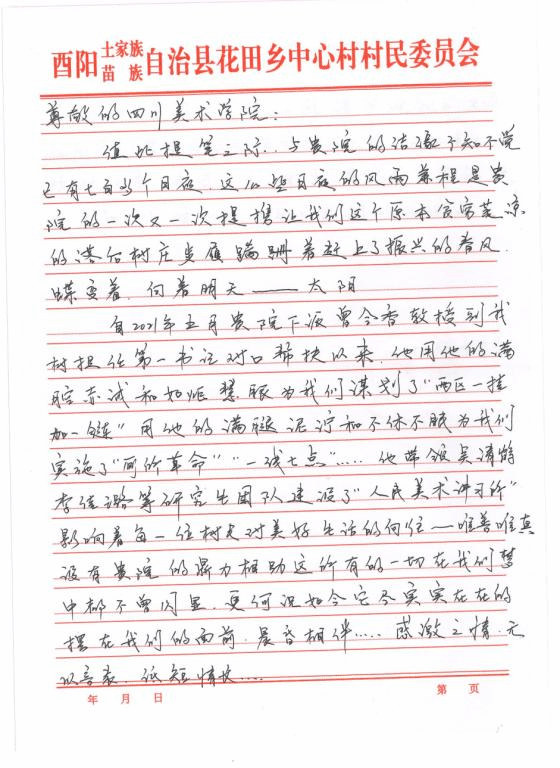 酉阳土家族苗族自治县花田乡中心村村民委员会
尊敬的四川美术学院：
值此提笔之际，与贵院的结缘不知不觉
已有七百多个日夜，这些日夜的风雨兼程是贵
院的一次又一次提携让我们这个原本贫穷荒凉
的落后村庄步履蹒跚着赶上了振兴的春风.
蝶变着.向着明天——太阳
自2021年五月贵院下派曾令香教授到我
村担任第一书记对口帮扶以来，他用他的满
腔赤诚和如炬慧眼为我们谋划了"两区一挂
加一链"用他的满腿泥泞和不休不眠为我们
实施了"厕所革命""一线七点".....他带领吴清
李佳璐等研究生团队建设了"人民美术讲习所"
影响着每一位村夫对美好生活的向往—唯善唯真
没有贵院的鼎力相助这所有的一切在我们梦
中都不曾闪显.更何况如今它尽实实在在的
摆在我们的面前.晨昏相伴.....感激之情.无
以言表.纸短情长.....
年 月 日 第 页